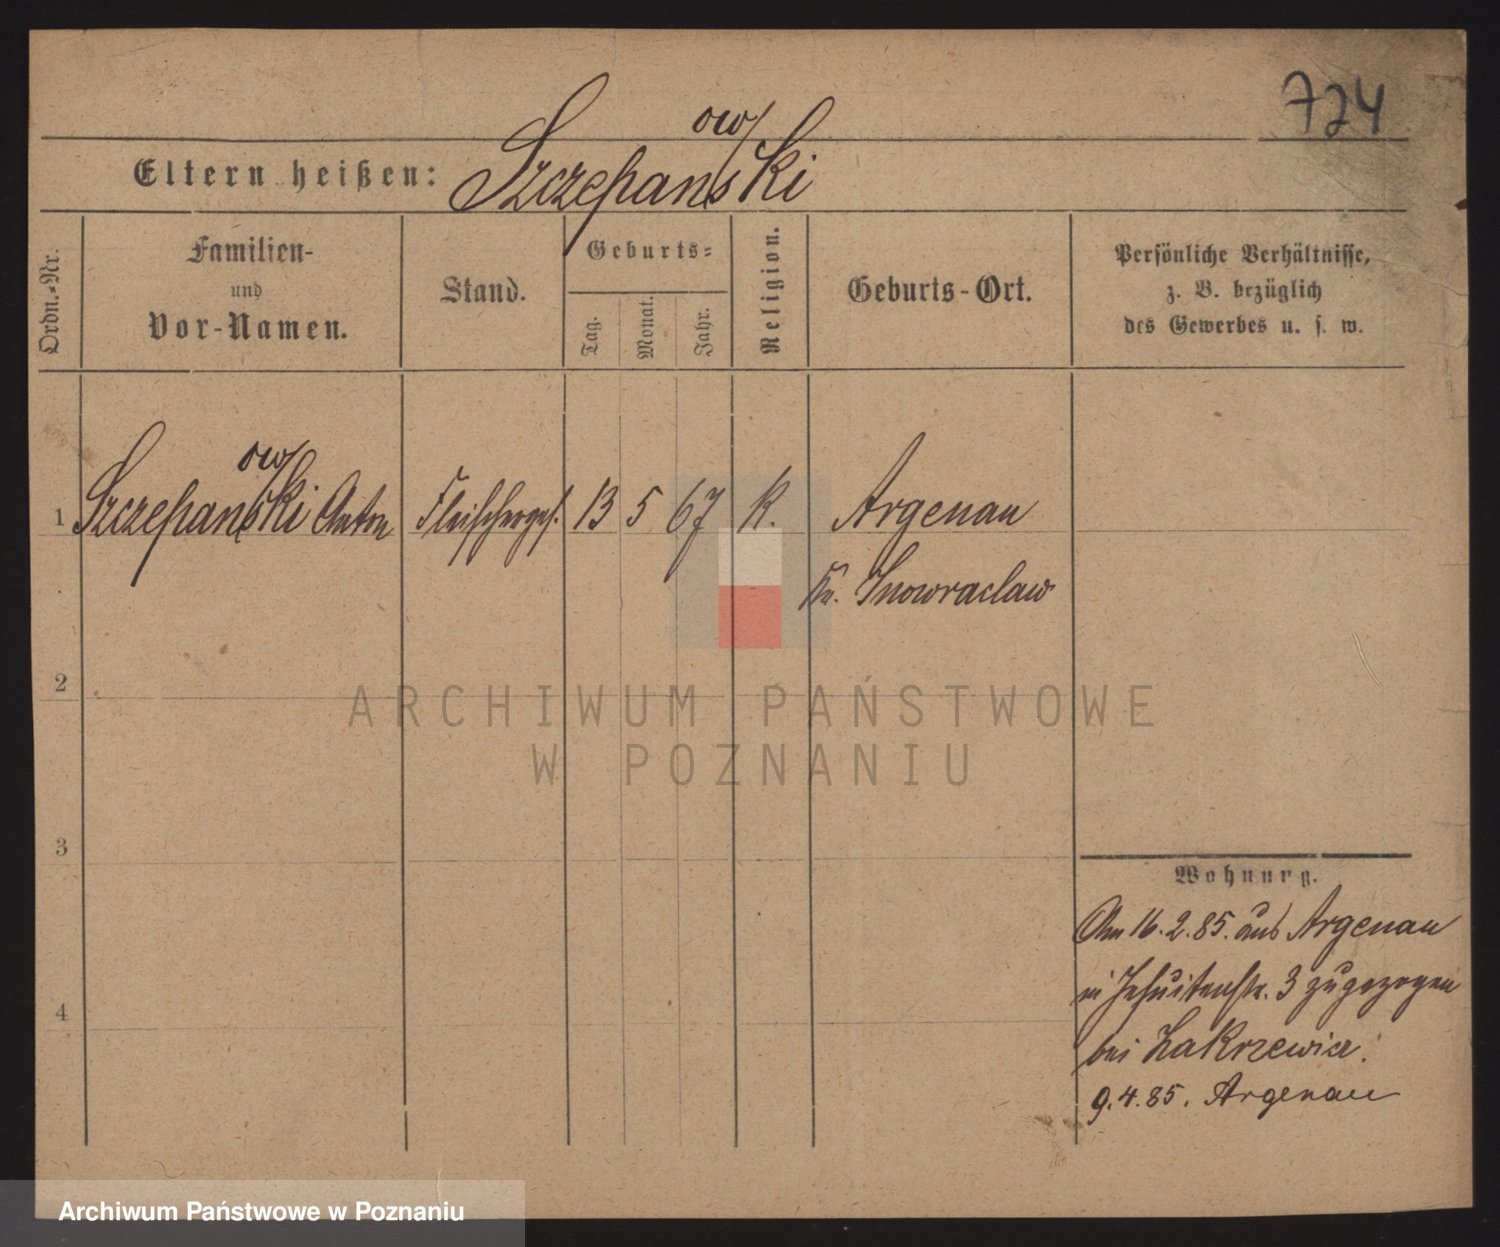 724
Eltern heißen: Szczepanowski
Ordn.-Nr.
Familien-
und
Vor-Namen.
Stand.
Geburts-
Tag.
Monat.
Jahr.
Religion.
Geburts-Ort.
Persönliche Verhältnisse,
z. B. bezüglich
des Gewerbes u. s. w.
1 Szczepanowski Anton Fleischerges. 13 5 67 K. Argenau
Kr. Inowraclaw
2
ARCHIWUM PAŃSTWOWE
W POZNANIU
3
Wohnung.
Am 16.2.85. aus Argenau
in Jesuitenstr. 3 zugezogen
4
bei Zakrzewicz.
9.4.85. Argenau
Archiwum Państwowe w Poznaniu